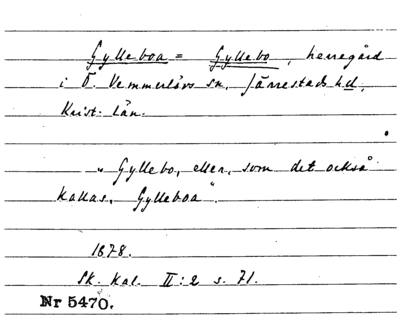 Gylleboa = Gyllebo, herregård
i Ö. Vemmerlövs sn, Järrestads hd,
Krist. Län.
„Gyllebo, eller, som det också
kallas, Gylleboa".
1878.
Sk. Kal. II:2 s. 71.
Nr 5470.